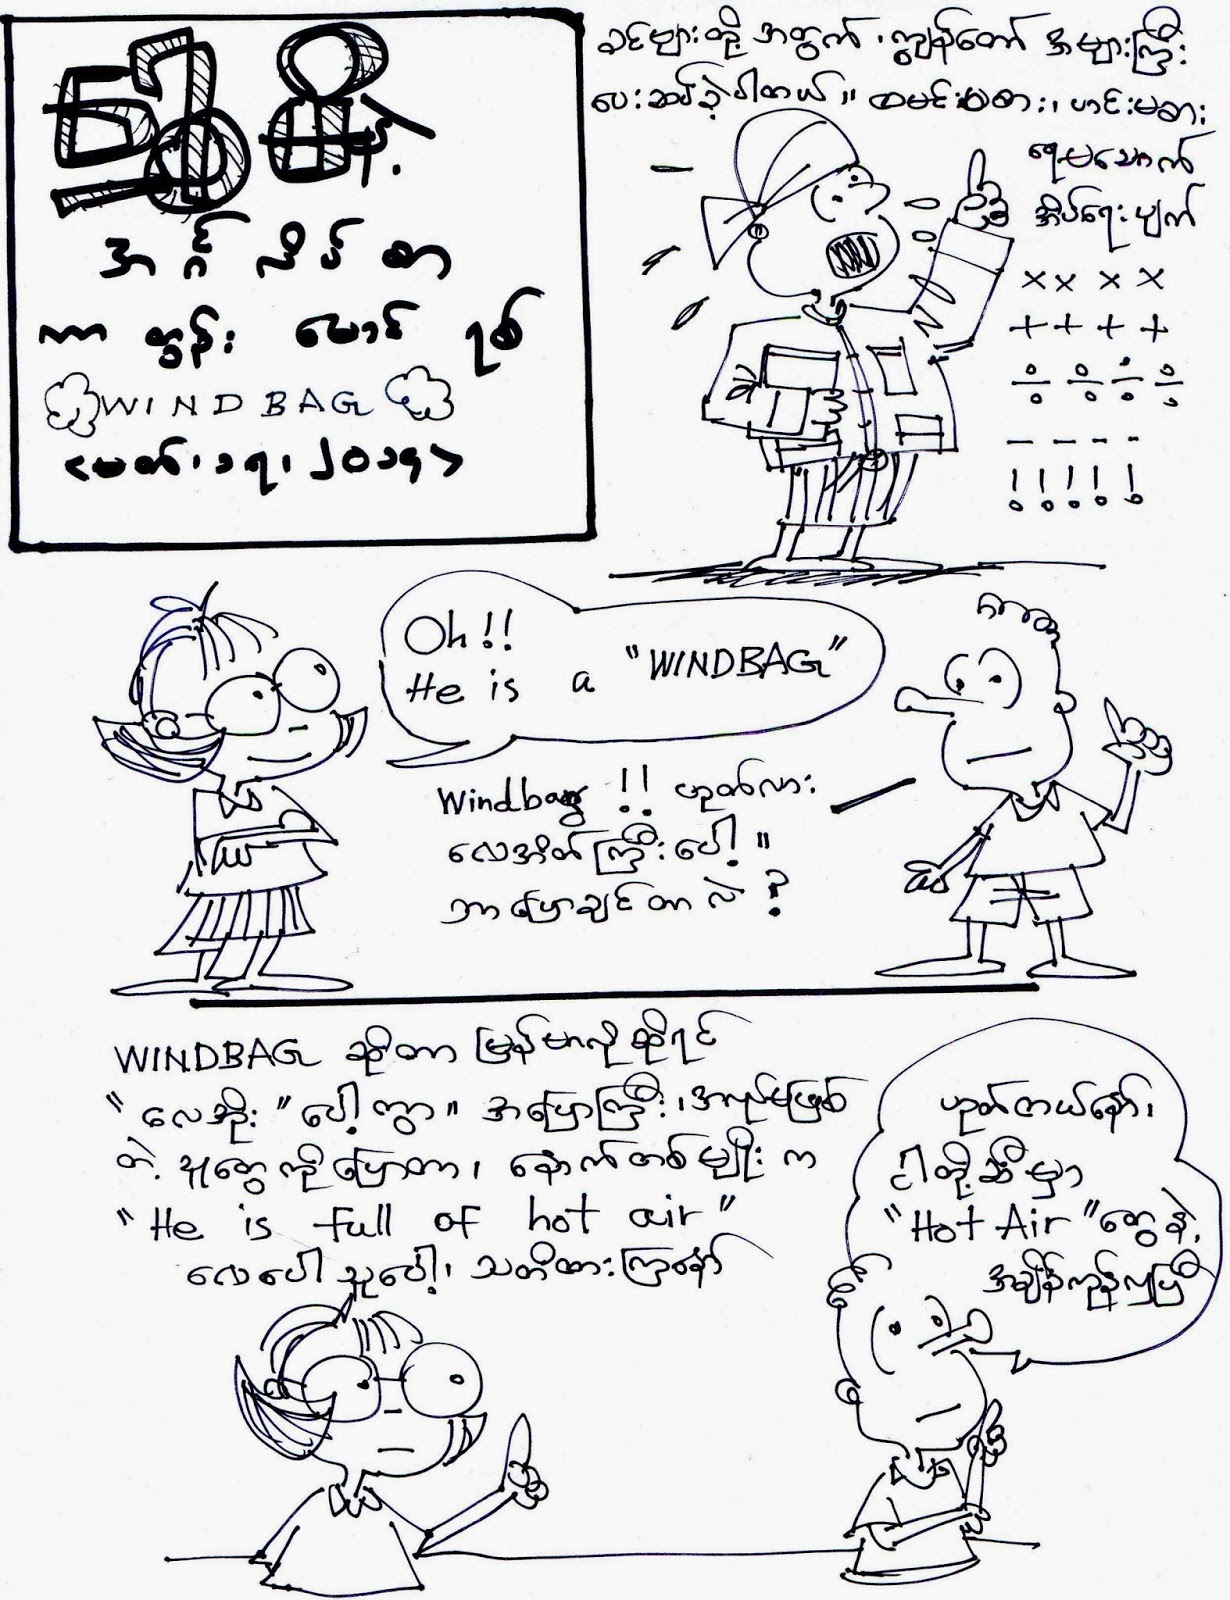 အင်္ဂလိပ်စာ
ကာတွန်း မောင်ရစ်
WINDBAG
<မတ်၊၁၅၊၂၀၁၅>
ခင်ဗျားတို့အတွက်၊ကျွန်တော် အများကြီး
ပေးဆပ်ခဲ့ပါတယ်။ ထမင်းမစား၊ ဟင်းမစား
ရေမသောက်
အိပ်ရေးပျက်
× × × ×
+ + + +
÷ ÷ ÷ ÷
- - - -
! ! ! ! !
Oh!!
He is a "WINDBAG"
Windbag !! ဟုတ်လား
လေအိတ်ကြီးပေါ့။
ဘာပြောချင်တာလဲ ?
WINDBAG ဆိုတာ မြန်မာလိုဆိုရင်
"လေအိုး" ပေါ့ကွာ။ အပြောကြီး၊အလုပ်မဖြစ်
တဲ့ သူတွေကိုပြောတာ၊ နောက်တစ်မျိုးက
"He is full of hot air"
လေပေါသူပေါ့၊ သတိထားကြနော်
ဟုတ်တယ်နော်၊
ငါတို့ဆီမှာ
"Hot Air" တွေနဲ့
အချိန်ကုန်လှပြီ